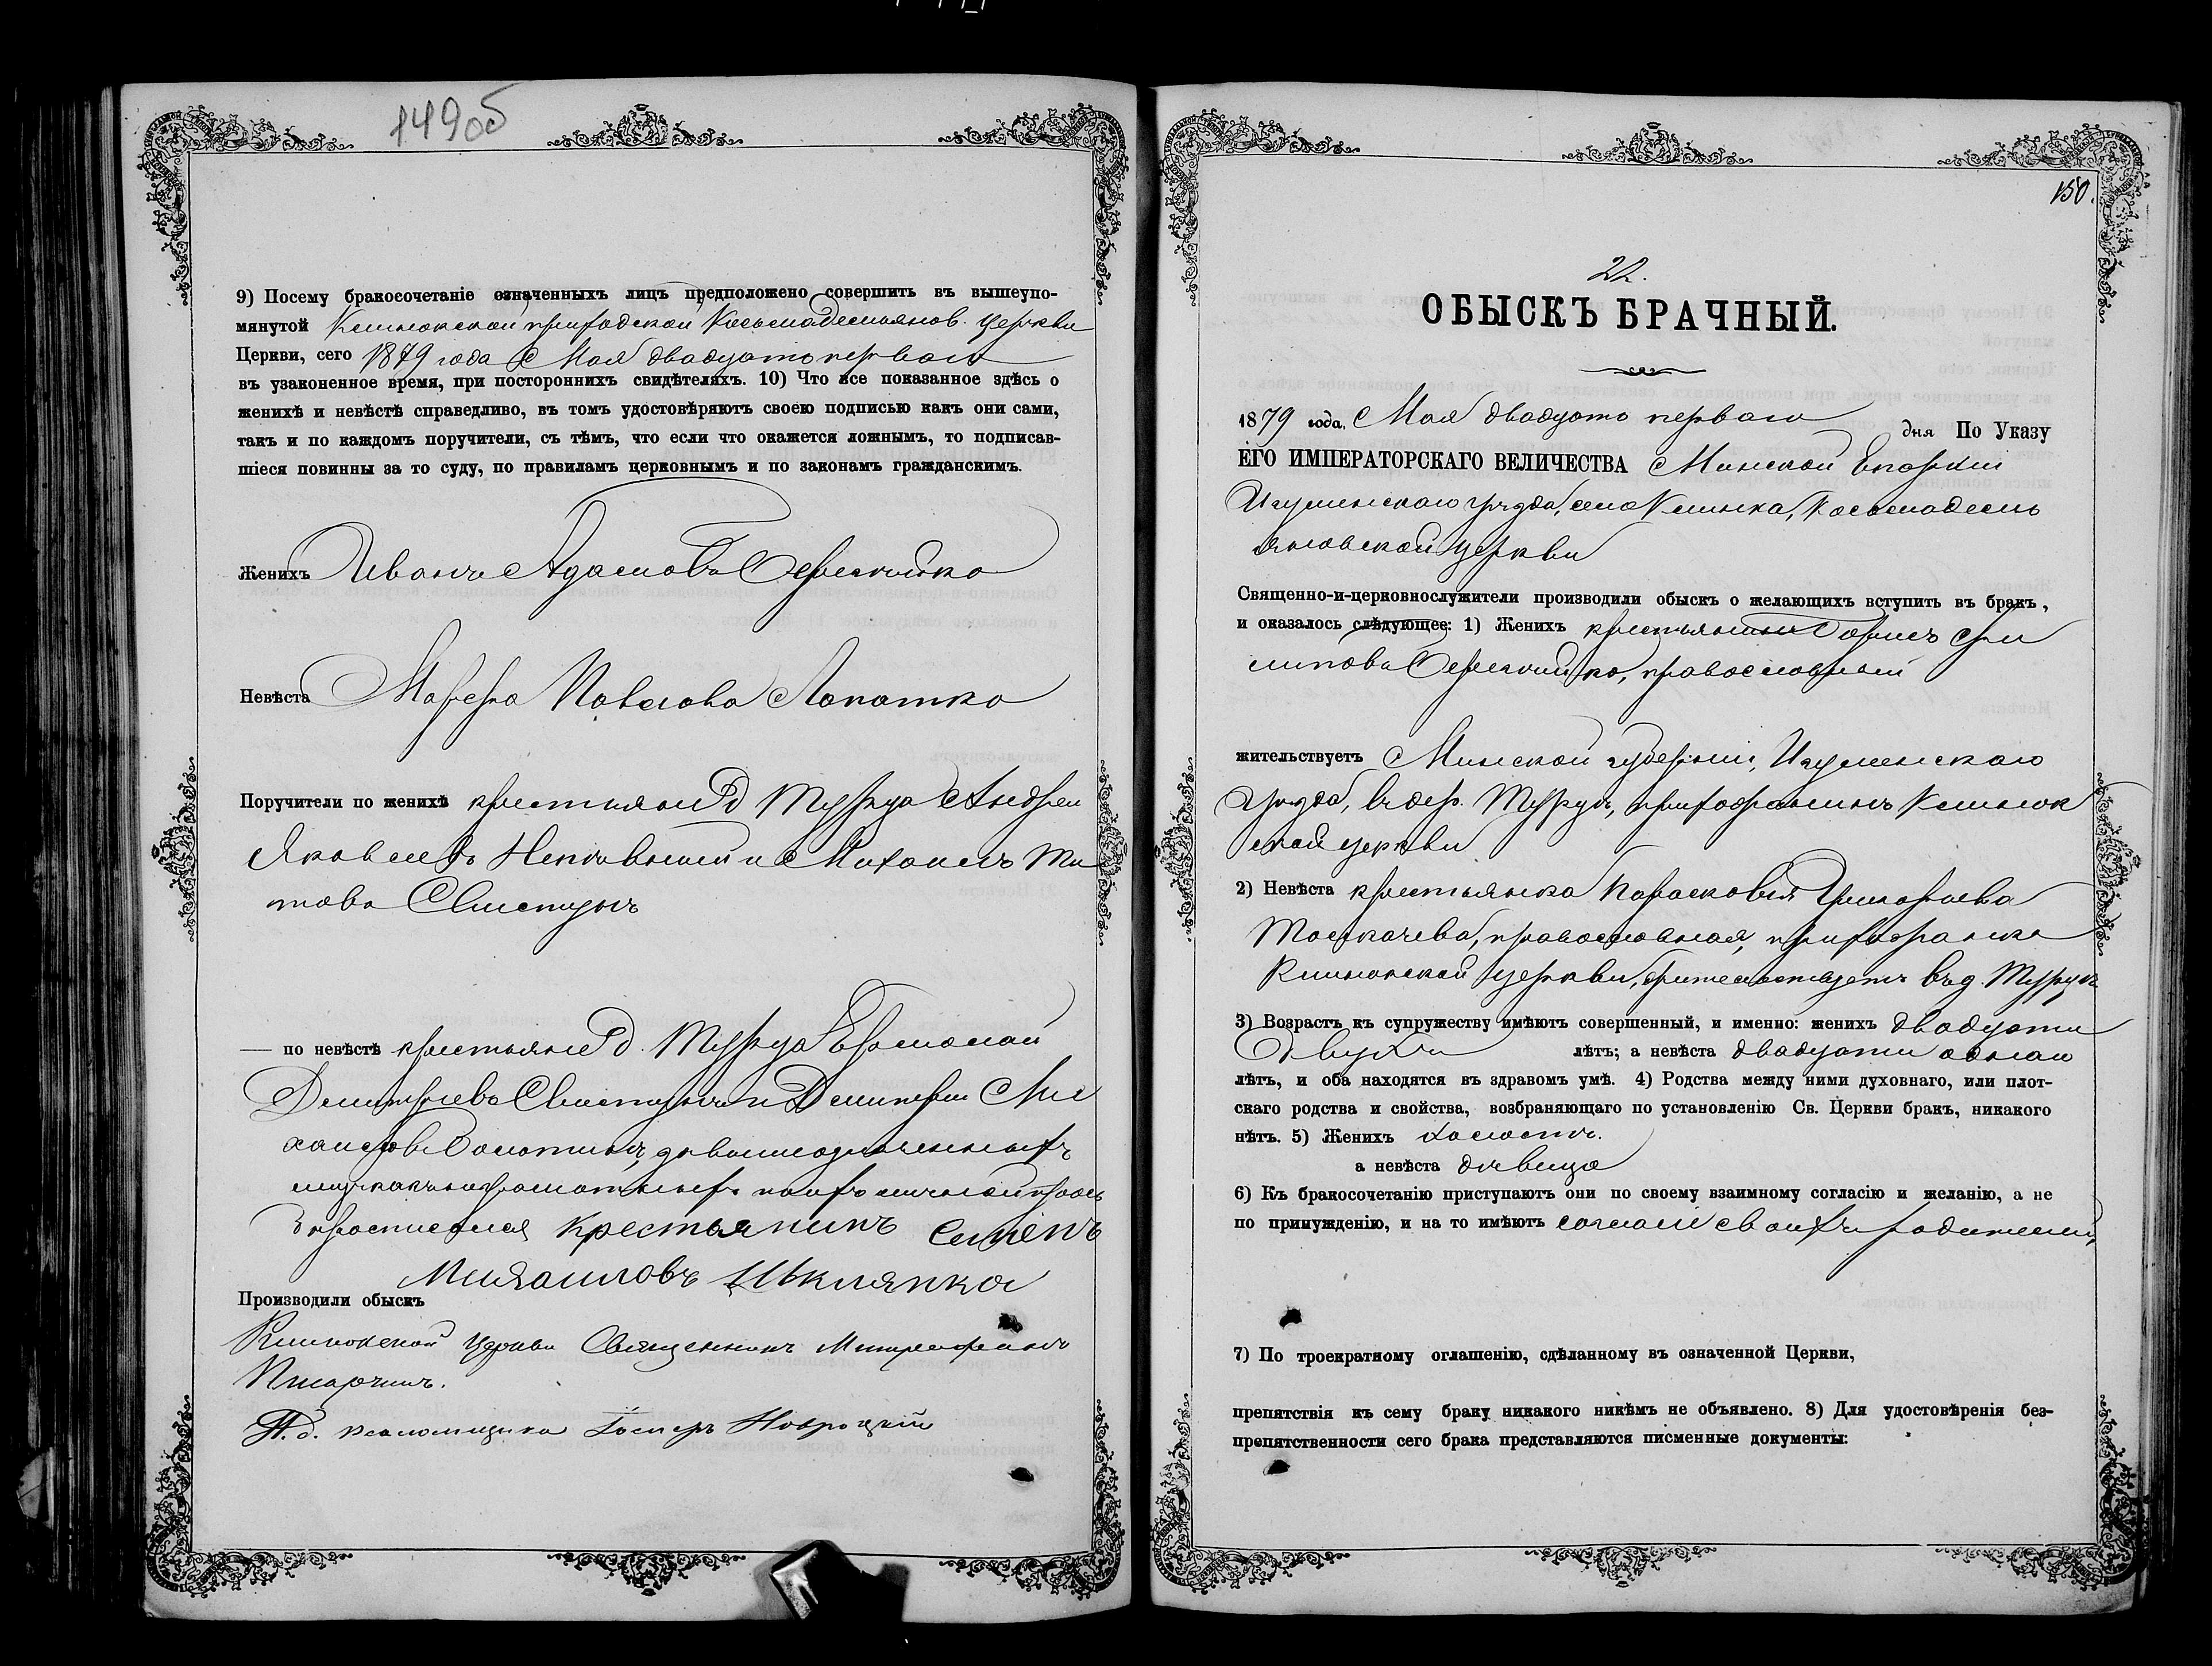 149об
9) Посему бракосочетаніе означенныхъ лицъ предположено совершить въ вышеупо-
мянутой Клинокской приходской Косьмодемьянов. церкви
Церкви, сего 1879 года Мая двадцать перваго
въ узаконенное время, при постороннихъ свидѣтеляхъ. 10) Что все показанное здѣсь о
женихѣ и невѣстѣ справедливо, въ томъ удостовѣряютъ своею подписью какъ они сами,
такъ и по каждомъ поручители, съ тѣмъ, что если что окажется ложнымъ, то подписав-
шіеся повинны за то суду, по правиламъ церковнымъ и по законамъ гражданскимъ.
Женихъ Иванъ Адамовъ
Невѣста Марфа Павлова Лопатко
Поручители по женихѣ крестьяне д Турца Андрей
Яковлевъ и Михаилъ Ти
товъ Свистунъ
— по невѣстѣ крестьяне д. Турца Ермолай
Дмитріевъ Свистунъ и Димитрій Ми
хайловъ Болотинъ, за вышеозначенныхъ
неграмотныхъ по ихъ личной прось
бѣ росписался крестьянинъ Семенъ
Михаиловъ Шклянка
Производили обыскъ
Клинокской Церкви Священникъ Митрофанъ
Писарчикъ.
И. д. псаломщика Новроцкій
150.
22.
ОБЫСКЪ БРАЧНЫЙ.
1879 года, Мая двадцать перваго дня По Указу
ЕГО ИМПЕРАТОРСКАГО ВЕЛИЧЕСТВА Минской Епархіи
Игуменскаго уѣзда, села Клинка, Косьмодемь
яновской церкви
Священно-и-церковнослужители производили обыскъ о желающихъ вступить въ бракъ,
и оказалось слѣдующее: 1) Женихъ крестьянинъ Борисъ Фи
липовъ православный
жительствуетъ Минской губерніи, Игуменскаго
уѣзда, въ дер. Турцѣ, прихожанинъ Клинок
ской церкви
2) Невѣста крестьянка Парасковія Григорьева
Толкачева, православная, прихожанка
Клинокской церкви, жительствуетъ въ д. Турцѣ
3) Возрастъ къ супружеству имѣютъ совершенный, и именно: женихъ двадцати
двухъ лѣтъ; а невѣста двадцати одного
лѣтъ, и оба находятся въ здравомъ умѣ. 4) Родства между ними духовнаго, или плот-
скаго родства и свойства, возбраняющаго по установленію Св. Церкви бракъ, никакого
нѣтъ. 5) Женихъ холостъ.
а невѣста дѣвица
6) Къ бракосочетанію приступаютъ они по своему взаимному согласію и желанію, а не
по принужденію, и на то имѣютъ согласіе своихъ родителей,
7) По троекратному оглашенію, сдѣланному въ означенной Церкви,
препятствія къ сему браку никакого никѣмъ не объявлено. 8) Для удостовѣренія без-
препятственности сего брака представляются писменные документы: